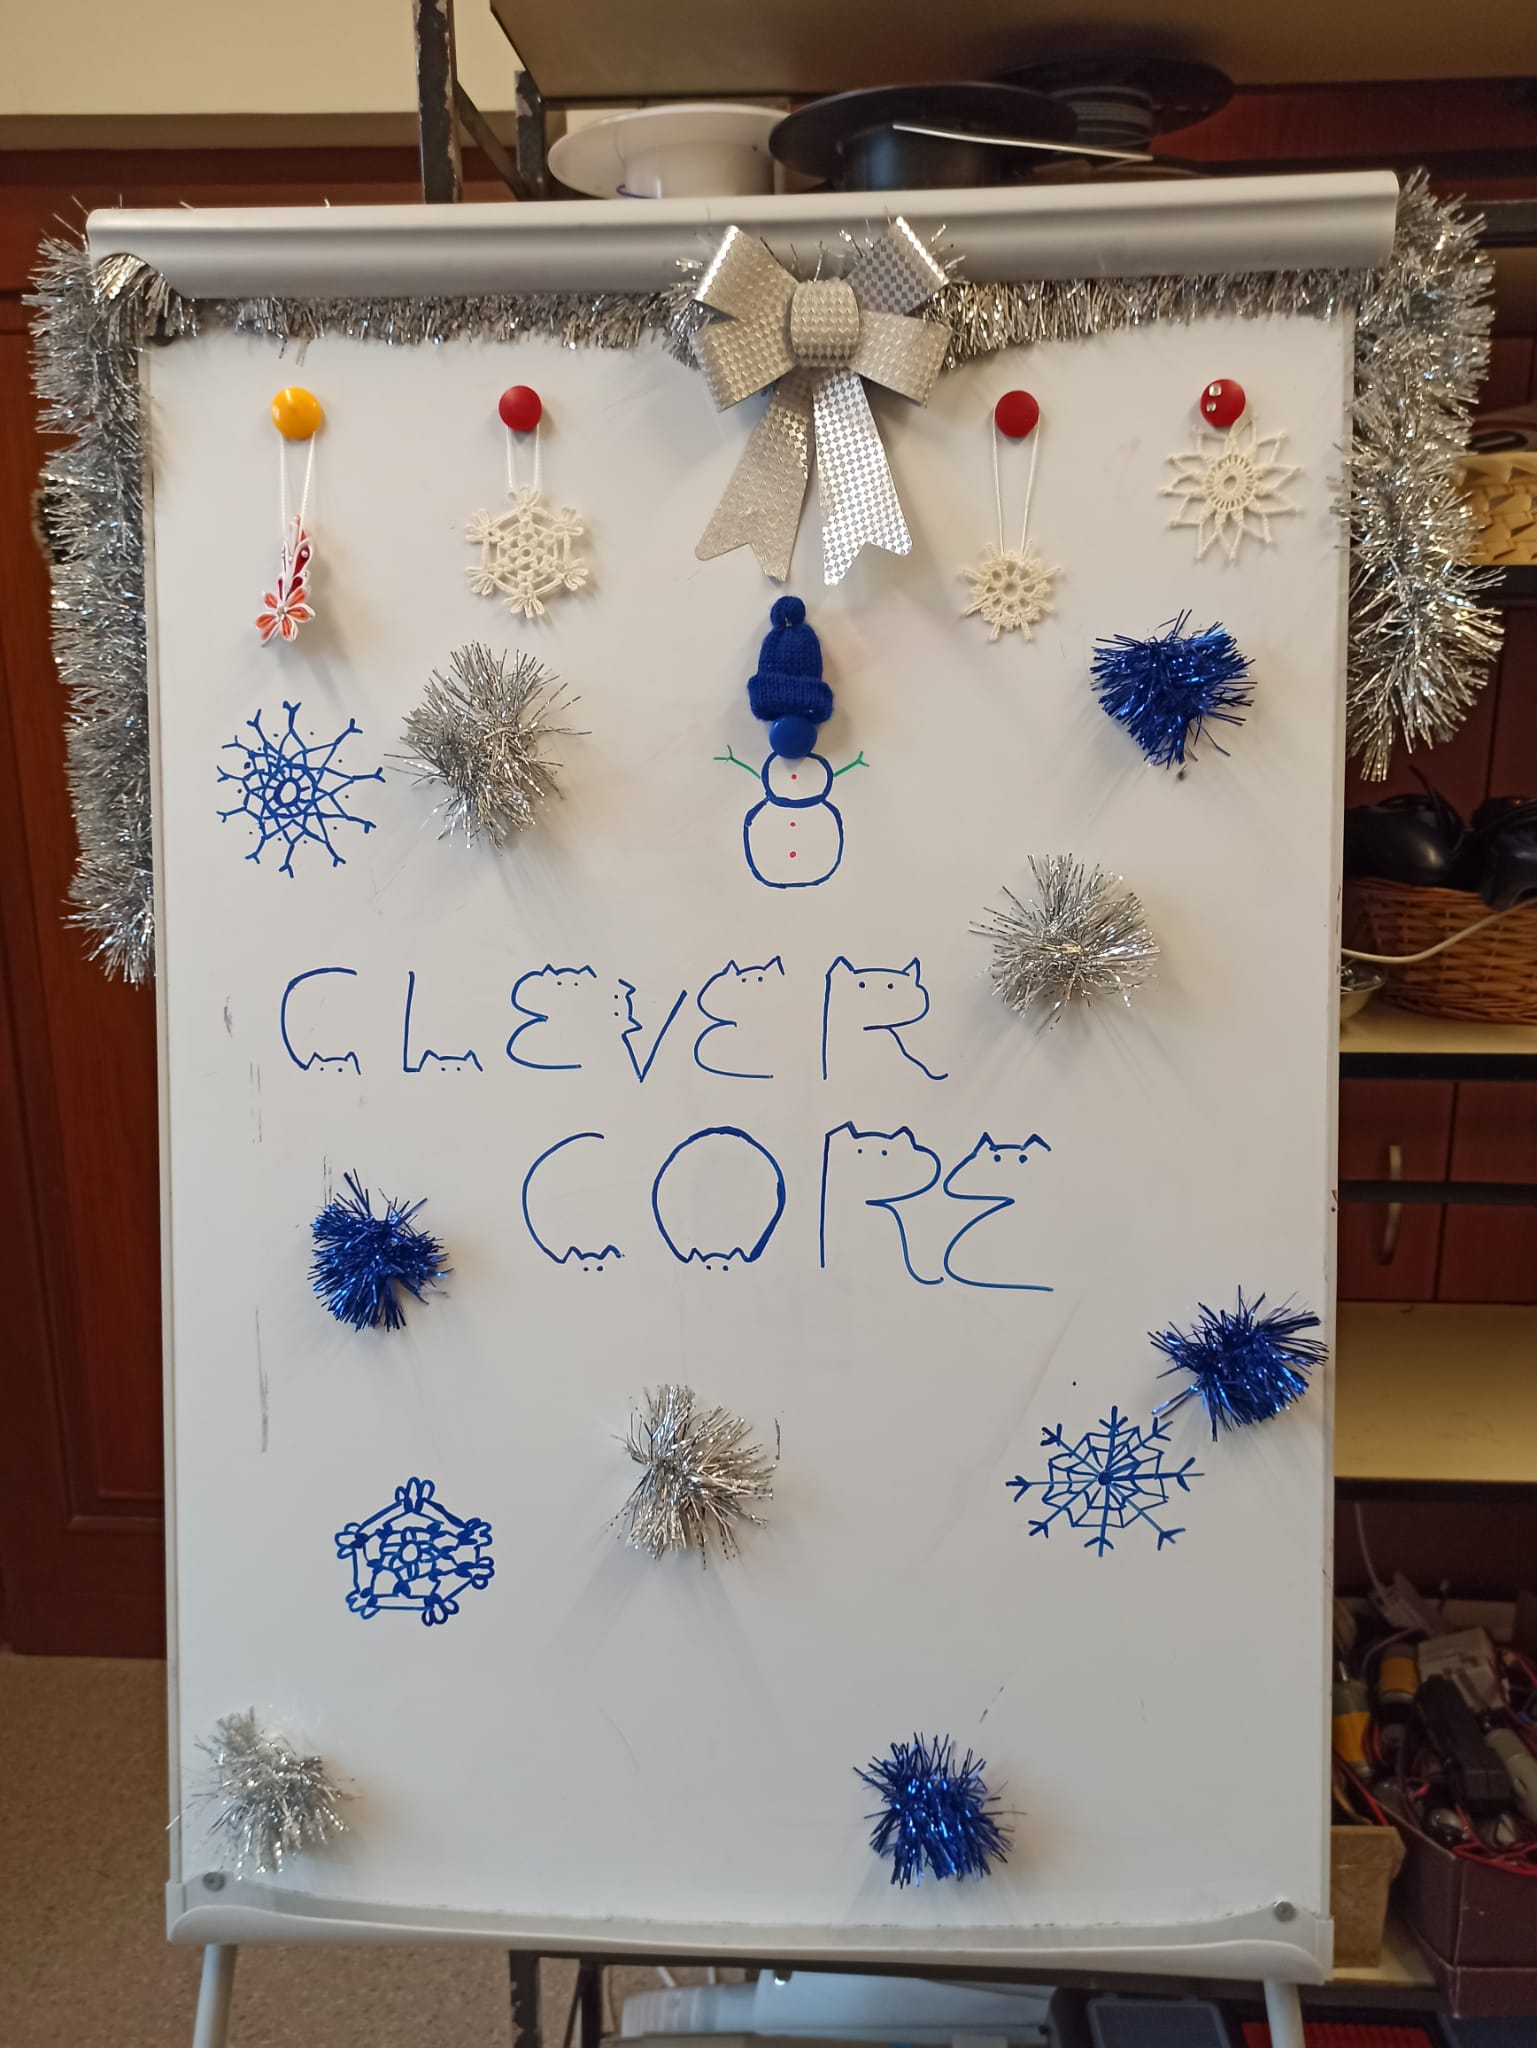 CLEVER
CORE